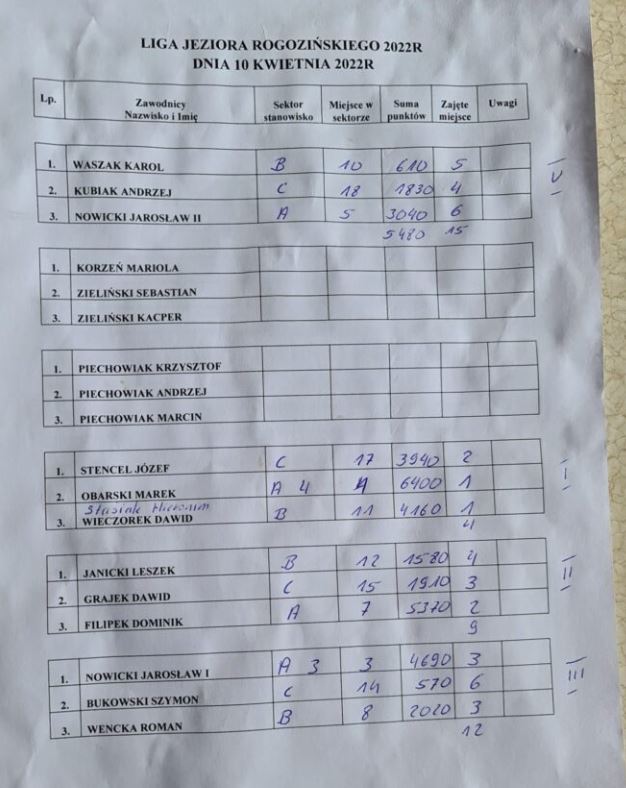 LIGA JEZIORA ROGOZIŃSKIEGO 2022R
DNIA 10 KWIETNIA 2022R
Lp. Zawodnicy Nazwisko i Imię Sektor stanowisko Miejsce w sektorze Suma punktów Zajęte miejsce Uwagi
1. WASZAK KAROL B 10 610 5
2. KUBIAK ANDRZEJ C 18 1830 4
V
3. NOWICKI JAROSŁAW II A 5 3040 6
5480 15
1. KORZEŃ MARIOLA
2. ZIELIŃSKI SEBASTIAN
3. ZIELIŃSKI KACPER
1. PIECHOWIAK KRZYSZTOF
2. PIECHOWIAK ANDRZEJ
3. PIECHOWIAK MARCIN
1. STENCEL JÓZEF C 17 3940 2
I
2. OBARSKI MAREK A 4 4 6400 1
Stasiak Hieronim
3. WIECZOREK DAWID B 11 4160 1
4
1. JANICKI LESZEK B 12 1580 4
II
2. GRAJEK DAWID C 15 1910 3
3. FILIPEK DOMINIK A 7 5370 2
9
1. NOWICKI JAROSŁAW I A 3 3 4690 3
III
2. BUKOWSKI SZYMON C 14 570 6
3. WENCKA ROMAN B 8 2020 3
12